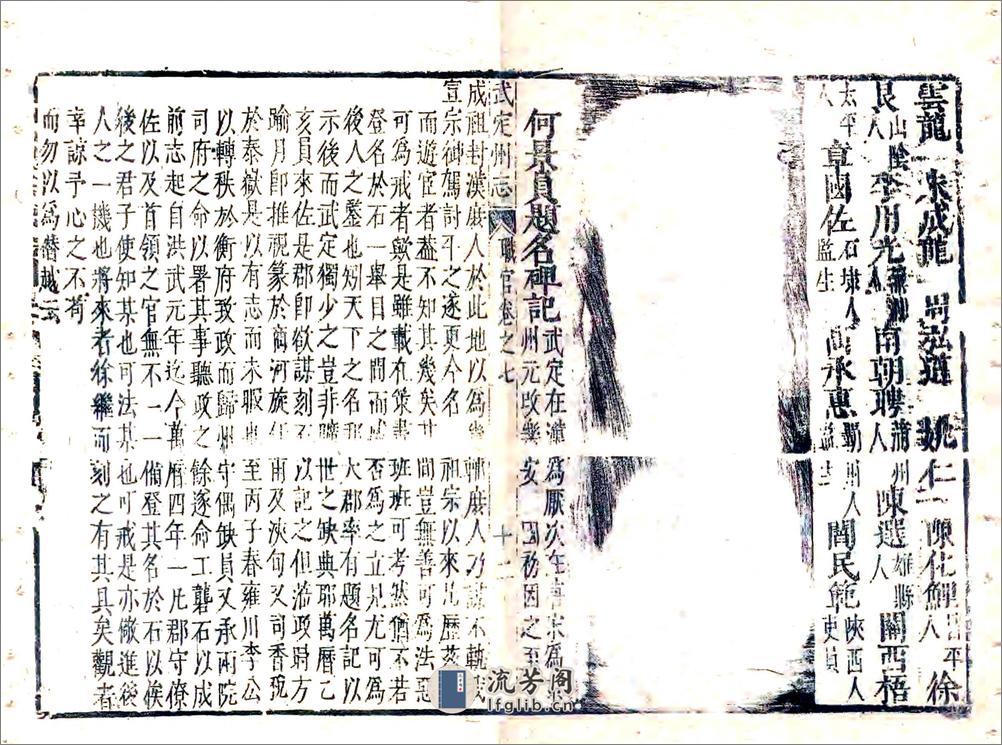 雲龍 朱成龍 周弘道 姚仁 陳化鯉昌平人 徐
艮山陰人 李用光 南朝聘蒲州人 陳選雄縣人 關西梧
太平人 章國佐石埭人監生 高承惠 人監生 閻民範陝西人吏員
何景員題名碑記武定在漢為厭次在 宋為
州元改 安 國初因之至
武定州志 職官卷之七 十二
成祖封漢庶人於此地以為 庶人乃謀不軌我
宣宗御駕討平之遂更今名 祖宗以來凡歷茲
而遊宦者葢不知其幾矣其間豈無善可為法惡
可為戒者歟是雖載在策書班班可考然猶不若
登名於石一舉目之間而臧否為之立見尤可為
後人之鑒也矧天下之名郡大郡率有題名記以
示後而武定獨少之豈非曠世之缺典耶萬曆乙
亥員來佐是郡即欲謀刻石以記之但涖政時方
踰月即推視篆於商河旋 兩及浹旬又司香稅
於泰嶽是以有志而未暇 至丙子春雍川李公
以轉秩於衡府致政而歸州守偶缺員又承兩院
司府之命以署其事聽政之餘遂命工礱石以成
前志起自洪武元年迄今萬曆四年一凡郡守僚
佐以及首領之官無不一一備登其名於石以俟
後之君子使知某也可法某也可戒是亦儆進後
人之一機也將來者徐繼而刻之有其具矣觀者
幸諒予心之不苟
而勿以為僭越云
流芳阁
lfglib.cn